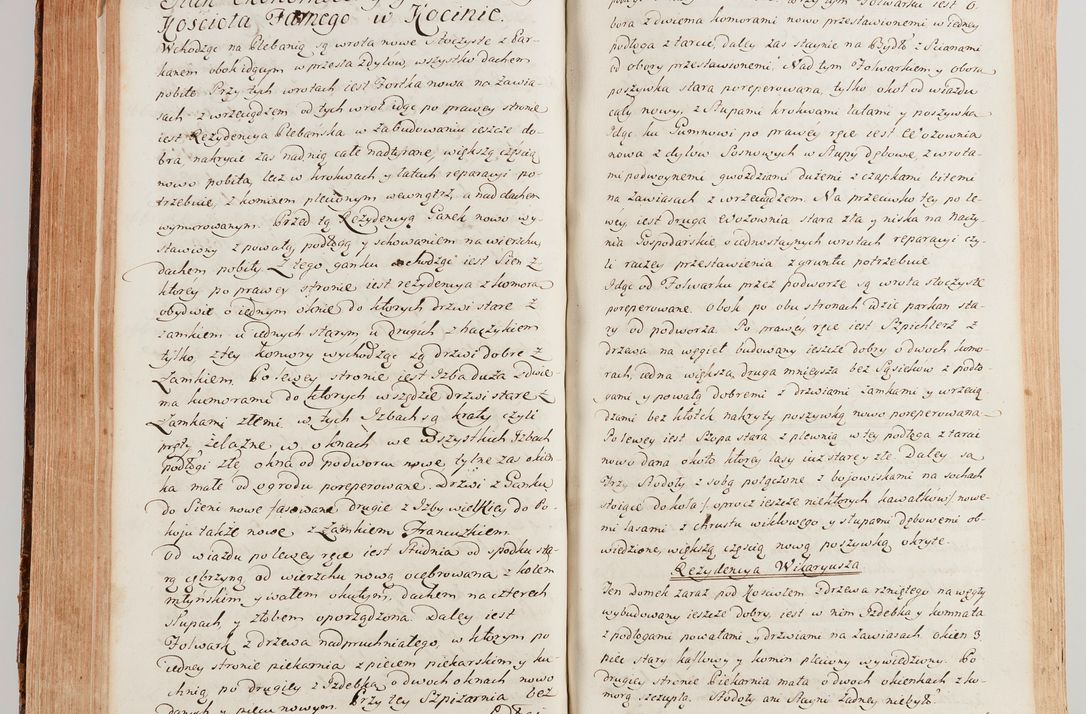 Kościoła Farnego w Kocinie.
Wchodząc na Plebanią są wrota nowe Stoczyste z Par-
kanem obok idącym w przęsła z dylów, wszystko dachem
pobite. Przy tych wrotach iest Fortka nowa na zawia-
sach z wrzeciądzem, od tych wrot idąc po prawey stronie
iest Rezydencya Plebańska w zabudowaniu ieszcze do-
bra, nakrycie zas nad nią całe nadtyrane, większą częścią
nowo pobita, lecz w krokwach y łatach reparacyi po-
trzebuie, z kominem plecionym wewnątrz, a nad dachem
wymurowanym. Przed tą Rezydencyą Ganek nowo wy-
stawiony z powałą, podłogą y schowaniem na wierzchu,
dachem pobity. Z tego ganku wchodząc iest Sien z
ktorey po prawey stronie iest rezydencya z komorą
obydwie o iednym oknie do ktorych drzwi stare z
zamkiem u iednych starym u drugich z haczykiem
tylko, z tey komory wychodząc są drzwi dobre z
Zamkiem. Po lewey stronie iest Izba duża z dwie-
ma komorami do ktorych wszędzie drzwi stare z
Zamkami złemi, w tych Izbach są kraty czyli
pręty żelazne w oknach we wszystkich Izbach
podłogi złe, okna od podworca nowe, tylne zas okien-
ka małe od ogrodu poreperowane. Drzwi z Ganku
do Sieni nowe fasowane drugie z Izby wielkiey do Po-
koju także nowe z Zamkiem Francuzkiem.
Od wiazdu po lewey ręce iest Studnia od spodku sta-
rą cębrzyną, od wierzchu nową ocębrowana z kołem
młyńskim y wałem okutym, dachem na czterech
słupach y złobem oporządzona. Daley iest
Folwark z drzewa nadpruchniałego, w którym po
iedney stronie piekarnia z piecem piekarskim y ku-
chnią, po drugiey z Izdebką o dwoch oknach nowo
danych y piecu nowym. Przy tey Szpiżarnia bez
bora z dwiema komorami nowo przestawionemi w iedney
podłoga z tarcic, daley zas staynie na Bydło z Scianami
od obory przestawionemi. Nad tym Folwarkiem y oborą
poszywka stara poreperowana, tylko okoł od wiazdu
cały nowy, z Słupami krokwami łatami y poszywką
Idąc ku Gumnowi po prawey ręce iest Wozownia
nowa z dylów Sosnowych w słupy dębowe, z wrota-
mi podwoynemi gwoździami dużemi z czapkami bitemi
na zawiasach z wrzeciądzem. Na przeciwko tey po le-
wey, iest druga Wozownia stara zła y niska na naczy-
nia Gospodarskie, o iednostaynych wrotach reparacyi czy-
li raczey przestawienia z gruntu potrzebuie.
Idąc od Folwarku przez podworze są wrota stoczyste
poreperowane. Obok po obu stronach idzie parkan sta-
ry od podworza. Po prawey ręce iest Szpichlerz z
drzewa na węgieł budowany ieszcze dobry o dwoch komo-
rach, iedna większa, druga mnieysza bez Sąsieków z podło-
gami y powałą dobremi z drzwiami zamkami y wrzecią-
dzami bez kłótek nakryty poszywką nowo poreperowaną.
Po lewey iest Szopa stara z plewnią w tey podłoga z tarcic
nowo dana około ktorey lasy iuż stare y złe. Daley są
trzy Stodoły z sobą połączone z bojowiskami na sochach
stoiące do koła / oprocz ieszcze niektórych kawałków / nowe-
mi lasami z chrustu wiklowego y słupami dębowemi ob-
wiedzione, większą częścią nową poszywką okryte.
Rezydencya Wikaryusza
Ten domek zaraz pod Kosciołem z drzewa rzniętego na węgły
wybudowany ieszcze dobry, iest w nim Izdebka y komnata
z podłogami powałami y drzwiami na zawiasach okien 3.
piec stary kaflowy y komin pleciony wywiedziony. Po
drugiey stronie Piekarnia mała o dwoch okienkach z ko-
morą szczupłą. Stodoły ani Stayni żadney niebyło.